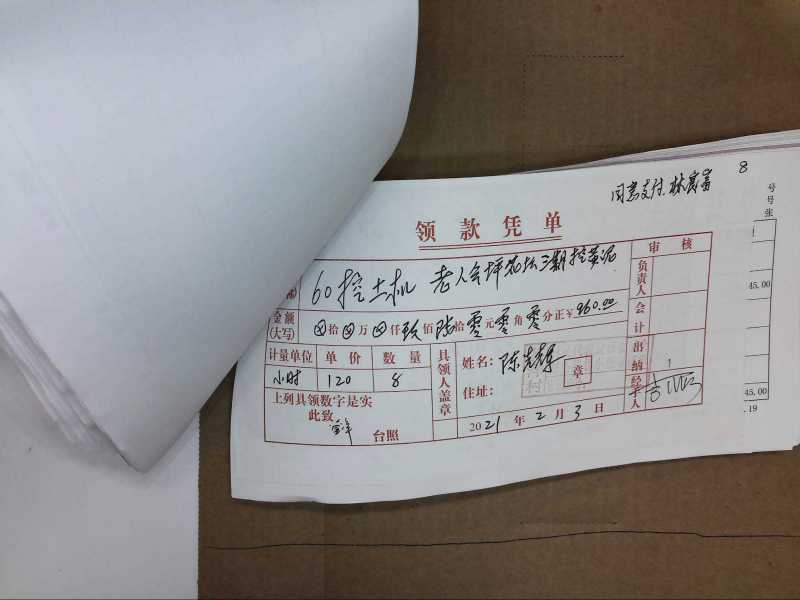 8
同意支付.林富
领款凭单
60挖土机 老人会坪花坛三期挖黄泥
审核
负责人
金额(大写) 拾 万 仟玖佰陆拾零元零角零分正¥960.00
会计
计量单位 单价 数量
小时 120 8
具领人盖章
姓名:陈
章
住址:
出纳
1
经手人
上列具领数字是实
此致
台照
2021年2月3日
号
号
张
45.00
45.00
.19